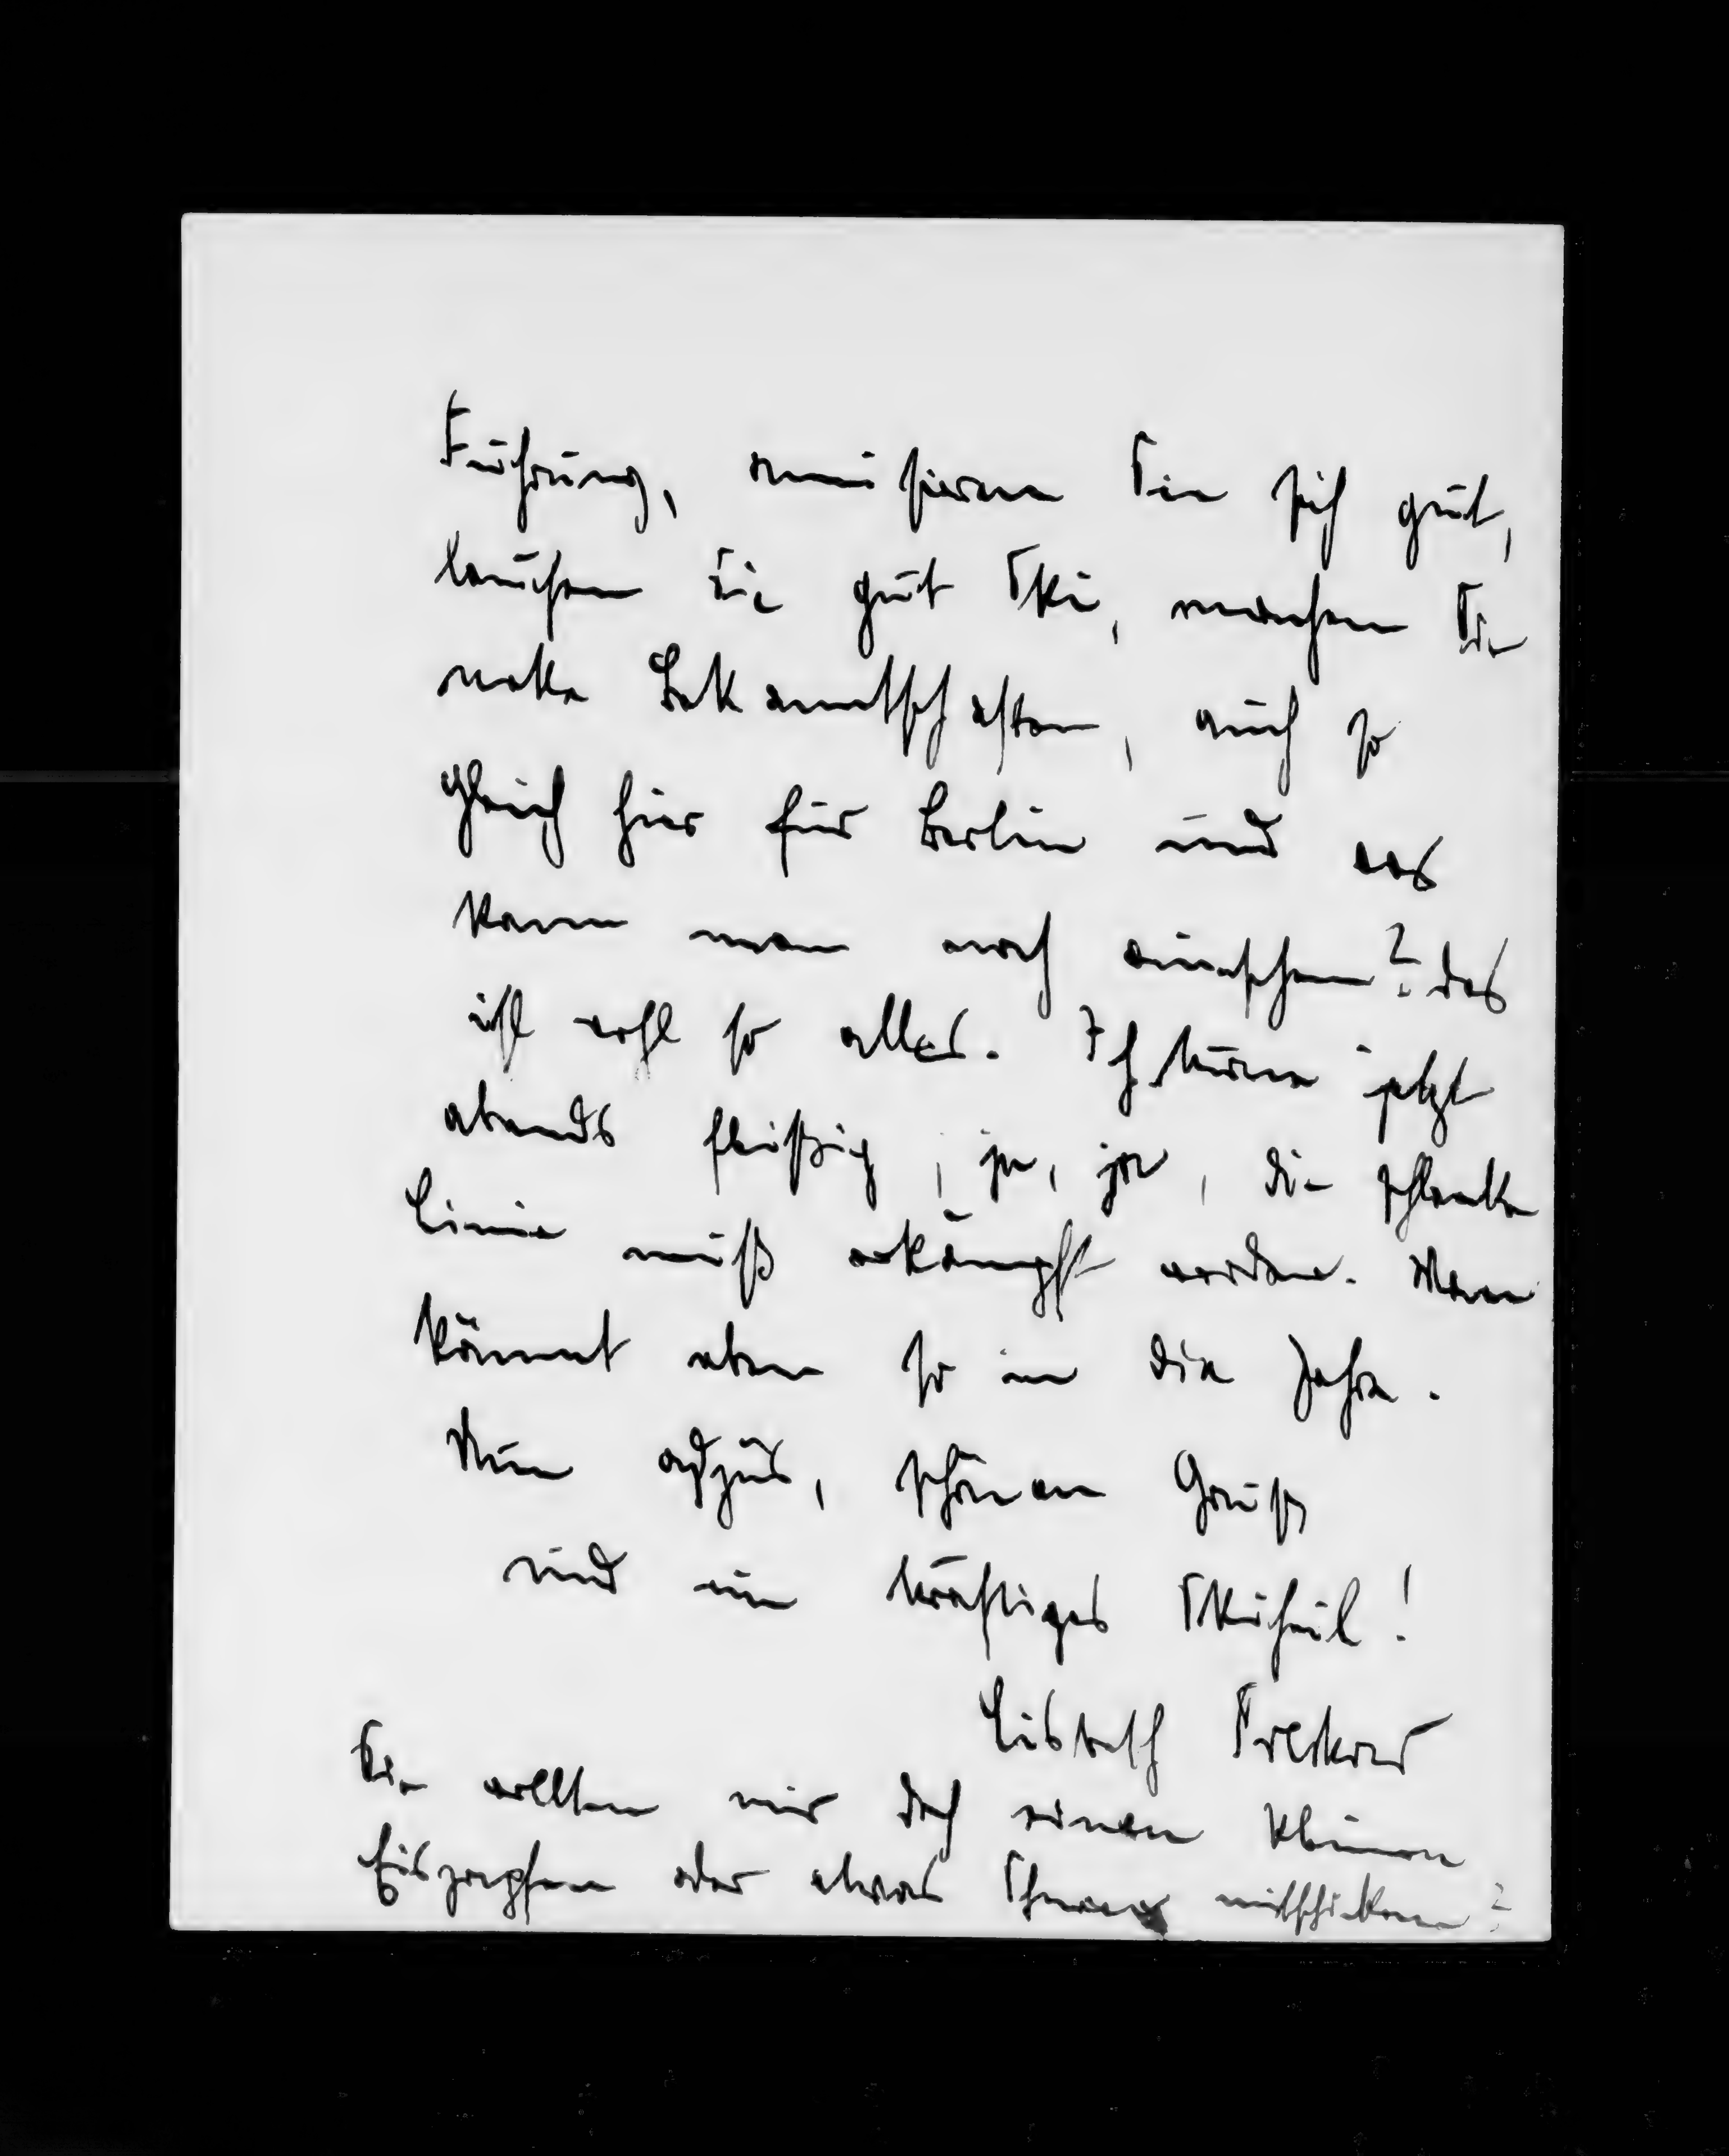 Führung, amüsieren Sie sich gut,
laufen Sie gut Ski, machen Sie
nette Bekanntschaften, auch so
gleich hier für Berlin und was
kann man noch wünschen? das
ist wohl so alles. Ich turne jetzt
abends fleißig, ja, ja, die schlanke
Linie muß erkämpft werden. Man
kömmt eben so in die Jahre.
Nun adjüs, schönen Gruß
und ein kräftiges Skiheil!
Lisbeth
Sie wollten mir doch einen kleinen
Eiszapfen oder etwas Schnee mitschicken?